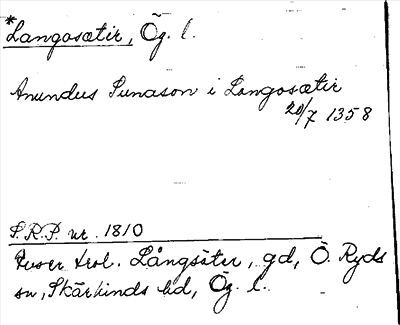 *Langosætir, Ög. l.
Anundus Sunason i Langosætir
20/7 1358
S.R.P. nr. 1810
Avser trol. Långsäter, gd, Ö. Ryds
sn, Skärkinds hd, Ög. l.